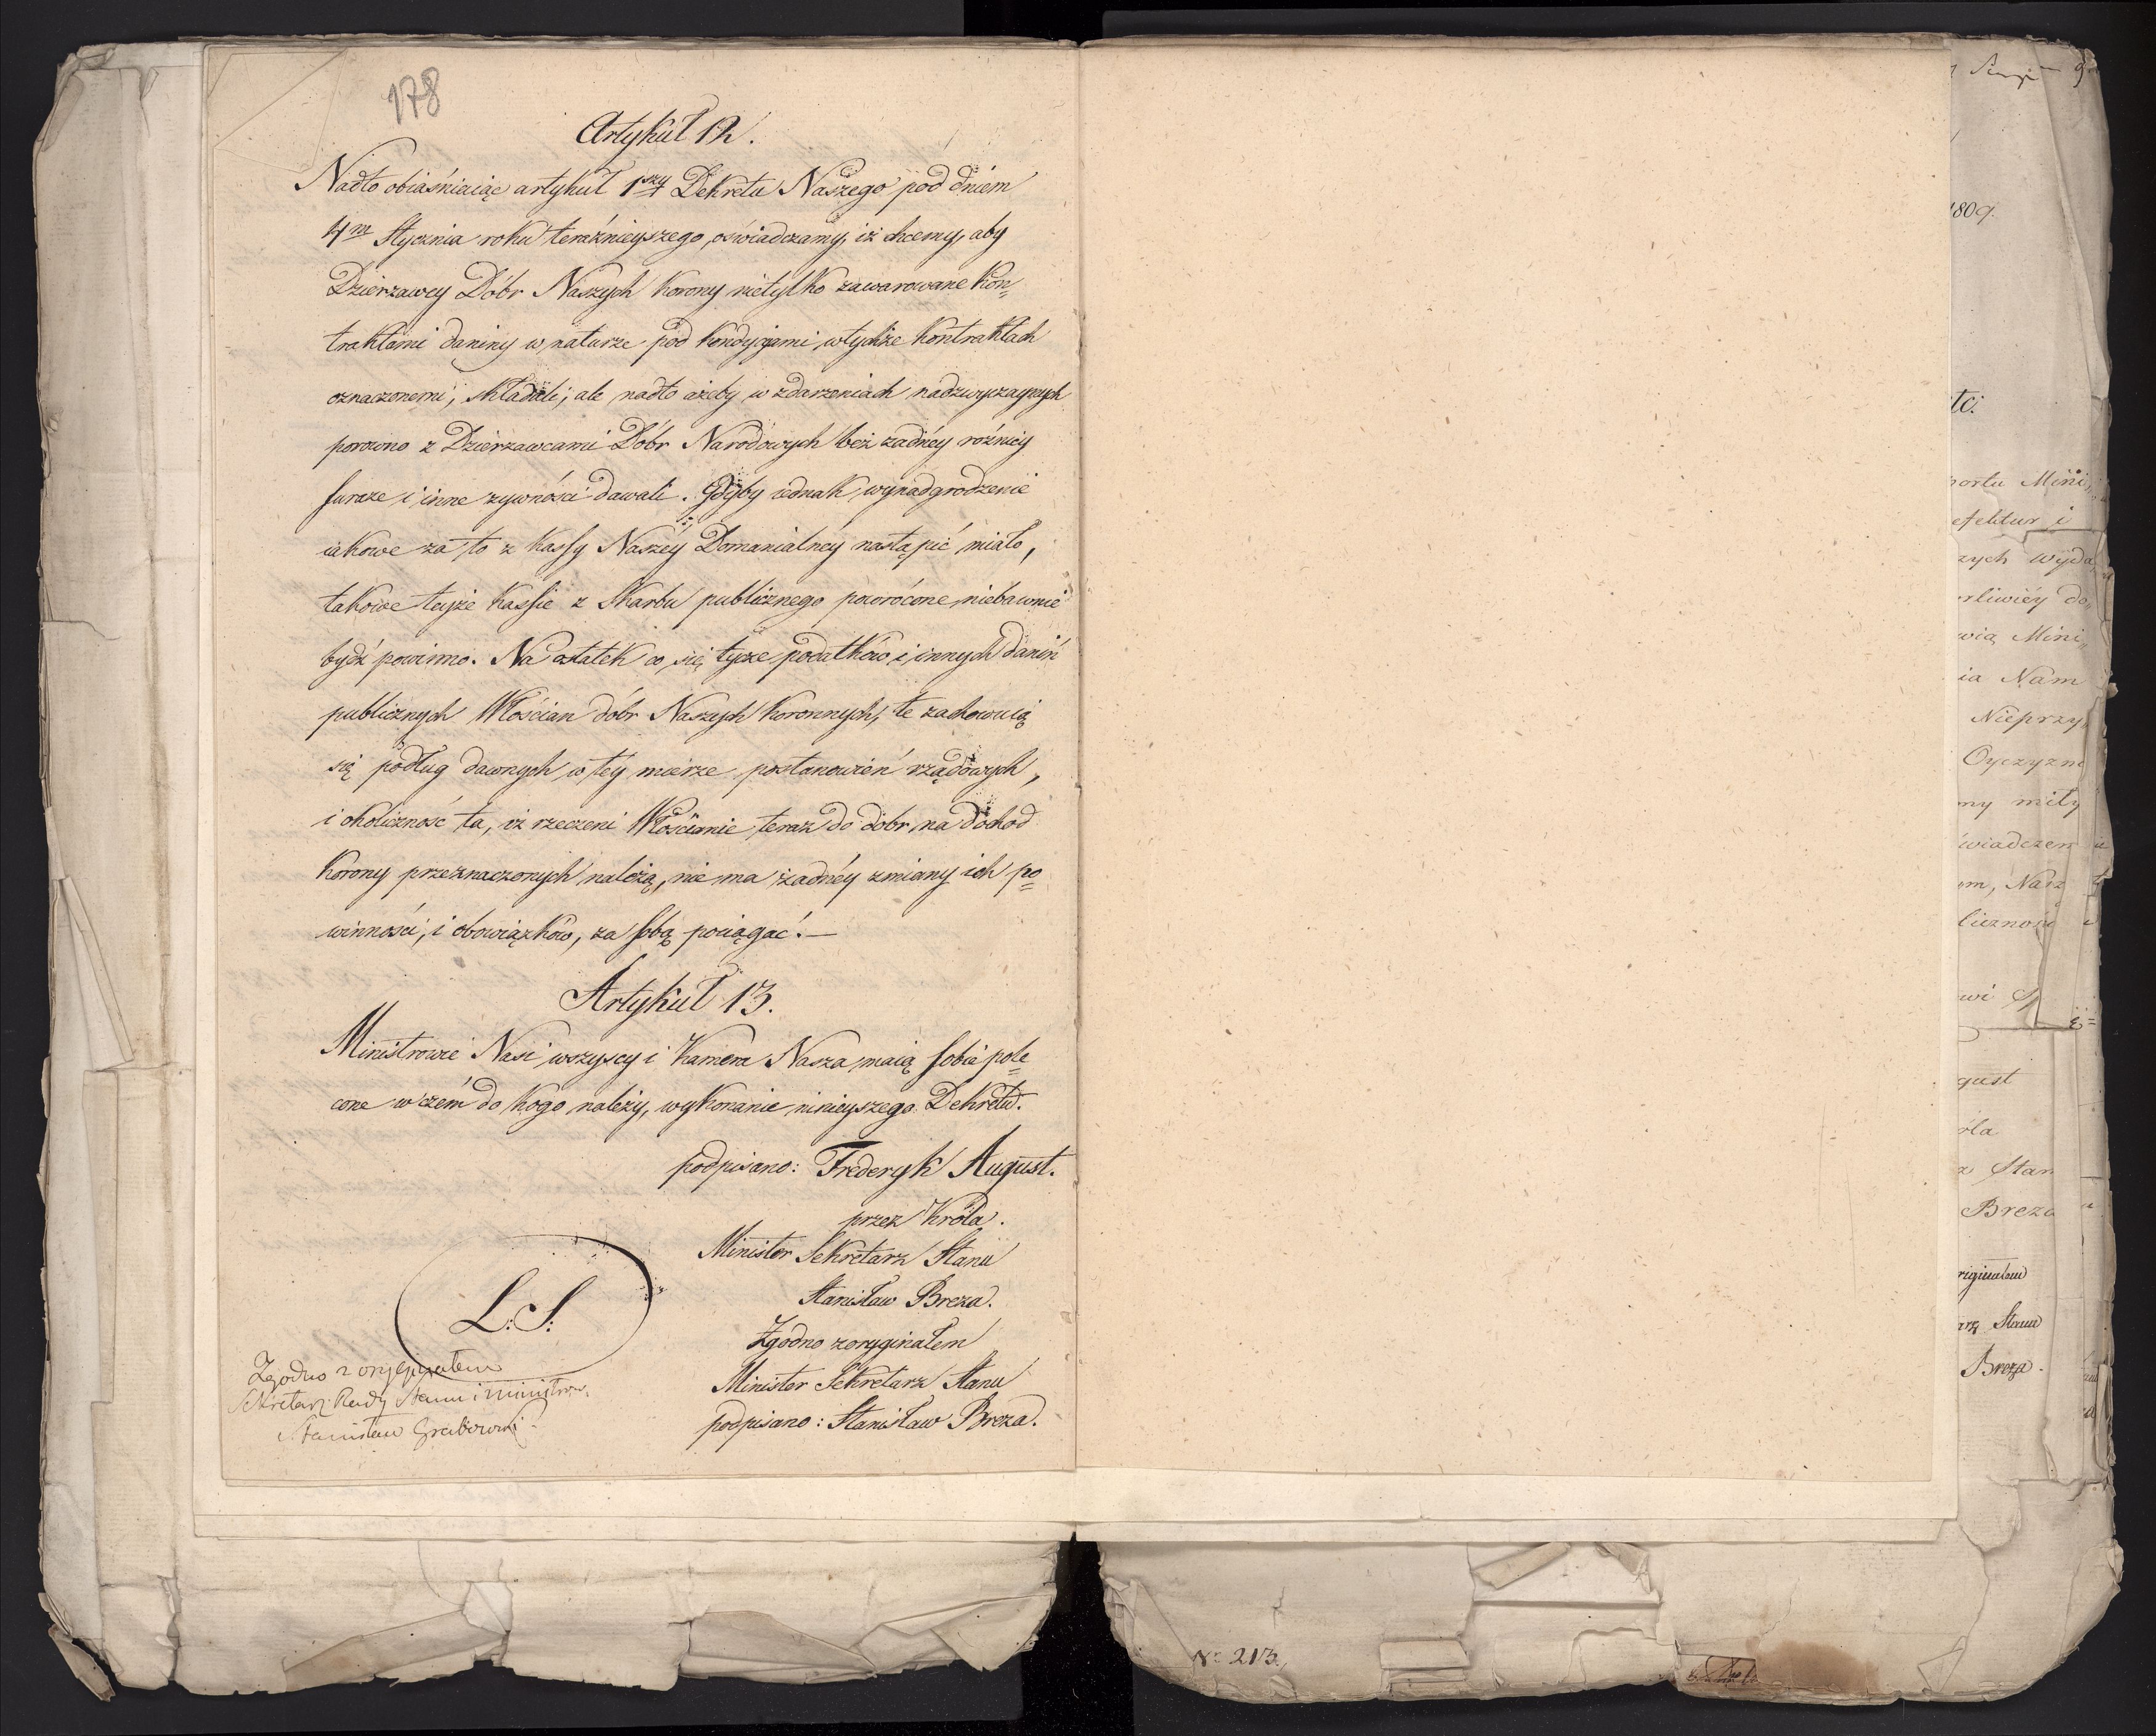 178
Artykuł 12.
Nadto obiaśniaiąc artykuł 1szy Dekretu Naszego pod dniem
4m Stycznia roku teraźnieyszego, oświadczamy, iż chcemy, aby
Dzierzawcy Dóbr Naszych Korony nietylko zawarowane Kon=
traktami daniny w naturze pod kondycjami w tychże Kontraktach
oznaczonemi, składali; ale nadto ażeby w zdarzeniach nadzwyczaynych
porowno z Dzierzawcami Dóbr Narodowych bez zadney rożnicy
furaże i inne zywności dawali. Gdyby iednak wynadgrodzenie
iakowe za to z Kassy Naszéy Domanialnéy nastąpić miało,
takowe teyże Kassie z Skarbu publicznego powrócone niebawnie
bydź powinno. Na ostatek co się tycze podatków i innych danin
publicznych Włościan dóbr Naszych Koronnych, te zachowuią
się podług dawnych w tey mierze postanowień rządowych,
i okoliczność ta, iż rzeczeni Włościanie teraz do dobr na dochod
Korony przeznaczonych należą, nie ma żadnéy zmiany ich po=
winności, i obowiązków, za sobą pociągać.—
Artykuł 13.
Ministrowie Nasi wszyscy i Kamera Nasza maią sobie pole=
cone w czém do kogo należy, wykonanie ninieyszego Dekretu.
podpisano: Frederyk August.
przez Króla.
Minister Sekretarz Stanu
Stanisław Breza.
L. S.
Zgodno z oryginałem
Minister Sekretarz Stanu
podpisano: Stanisław Breza.
Zgodno z oryginałem
Sekretarz Rady Stanu i Ministrów
Stanisław Grabowski
1809.
etc:
portu Mini,,
efektur i
szych wyda,,
rliwiéy do,,
wią Mini,,
ia Nam
Nieprzy,,
Oyczyzn
ny miły
wiadczen
m, Nasz
liczność
wi
gust
óla
z Stan
Breza
riginałem
arz Stanu
Breza.
No 213.